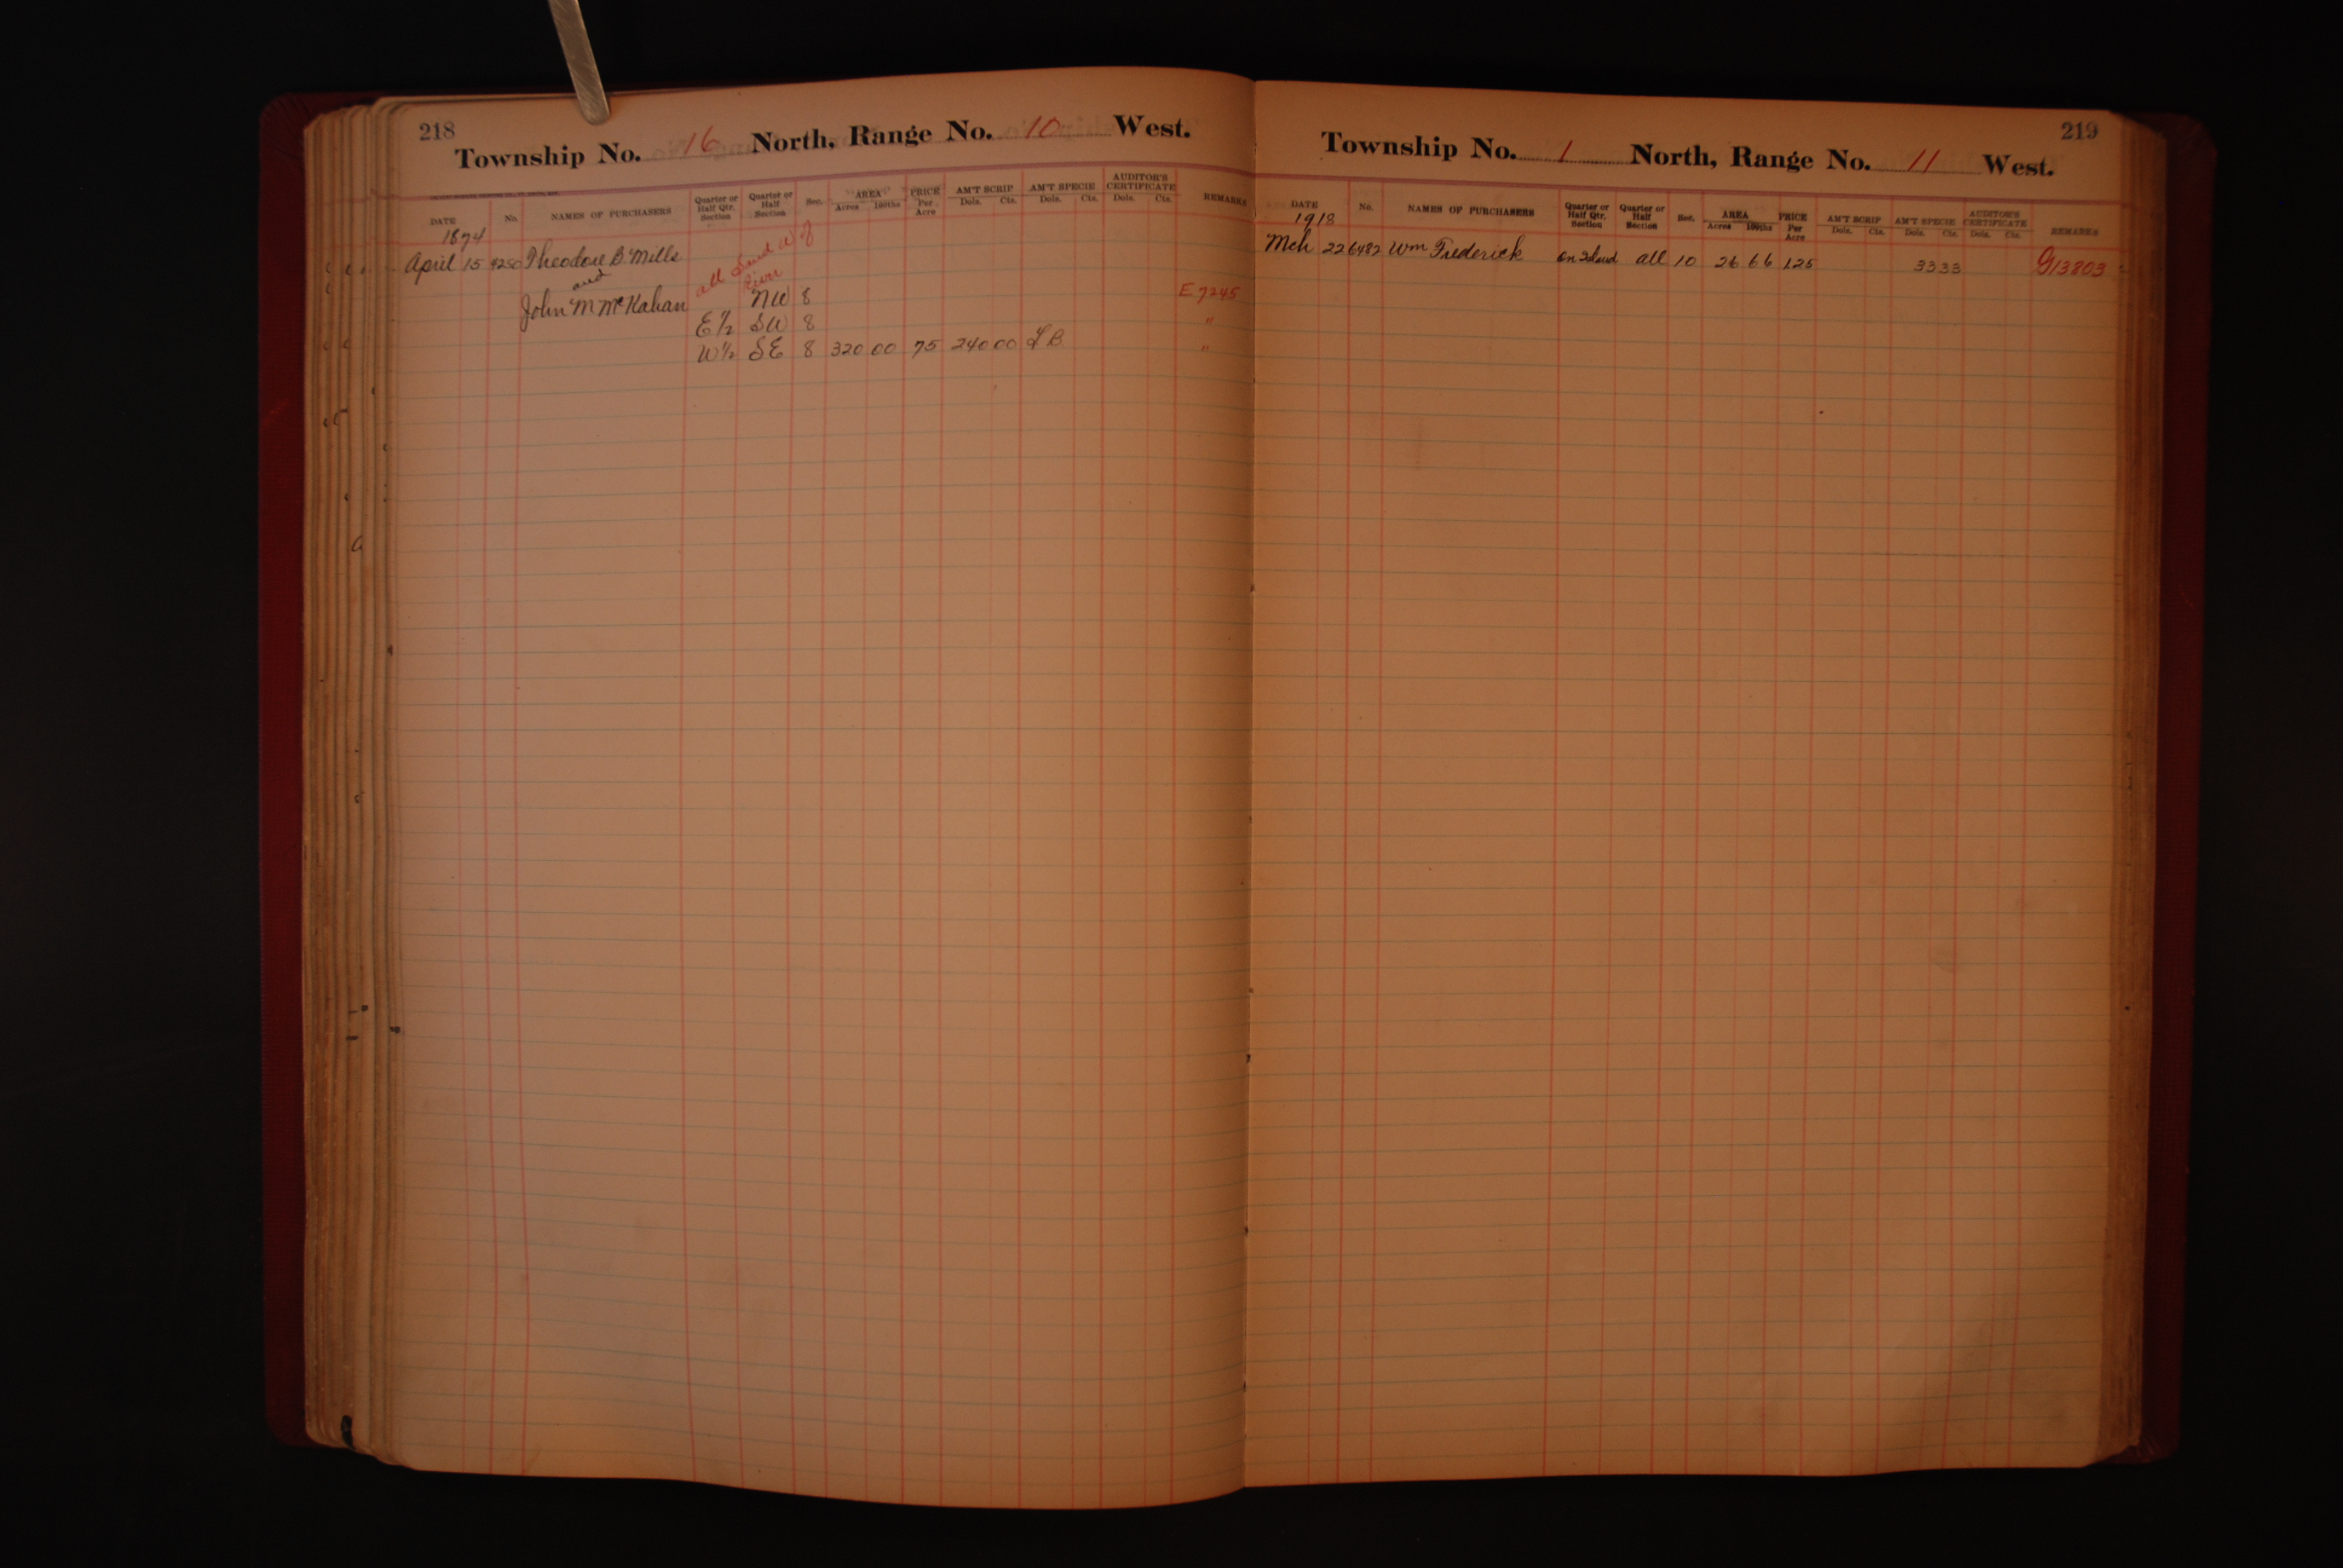 218
Township No. 16 North, Range No. 10 West.
DATE No. NAMES OF PURCHASERS Quarter or Half Qtr. Section Quarter or Half Section Sec. AREA Acres 100ths PRICE Per Acre AM'T SCRIP Dols. Cts. AM'T SPECIE Dols. Cts. AUDITOR'S CERTIFICATE Dols. Cts. REMARKS
1874
April 15 Theodore B Mills all W of
and River
John M McKahan NW 8 E 7245
E½ SW 8 "
W½ SE 8 320 00 75 240 00 "
219
Township No. 1 North, Range No. 11 West.
DATE No. NAMES OF PURCHASERS Quarter or Half Qtr. Section Quarter or Half Section Sec. AREA Acres 100ths PRICE Per Acre AM'T SCRIP Dols. Cts. AM'T SPECIE Dols. Cts. AUDITOR'S CERTIFICATE Dols. Cts. REMARKS
1918
Mch 22 6482 Wm Frederick on Island all 10 26 66 1.25 33 33 G13803